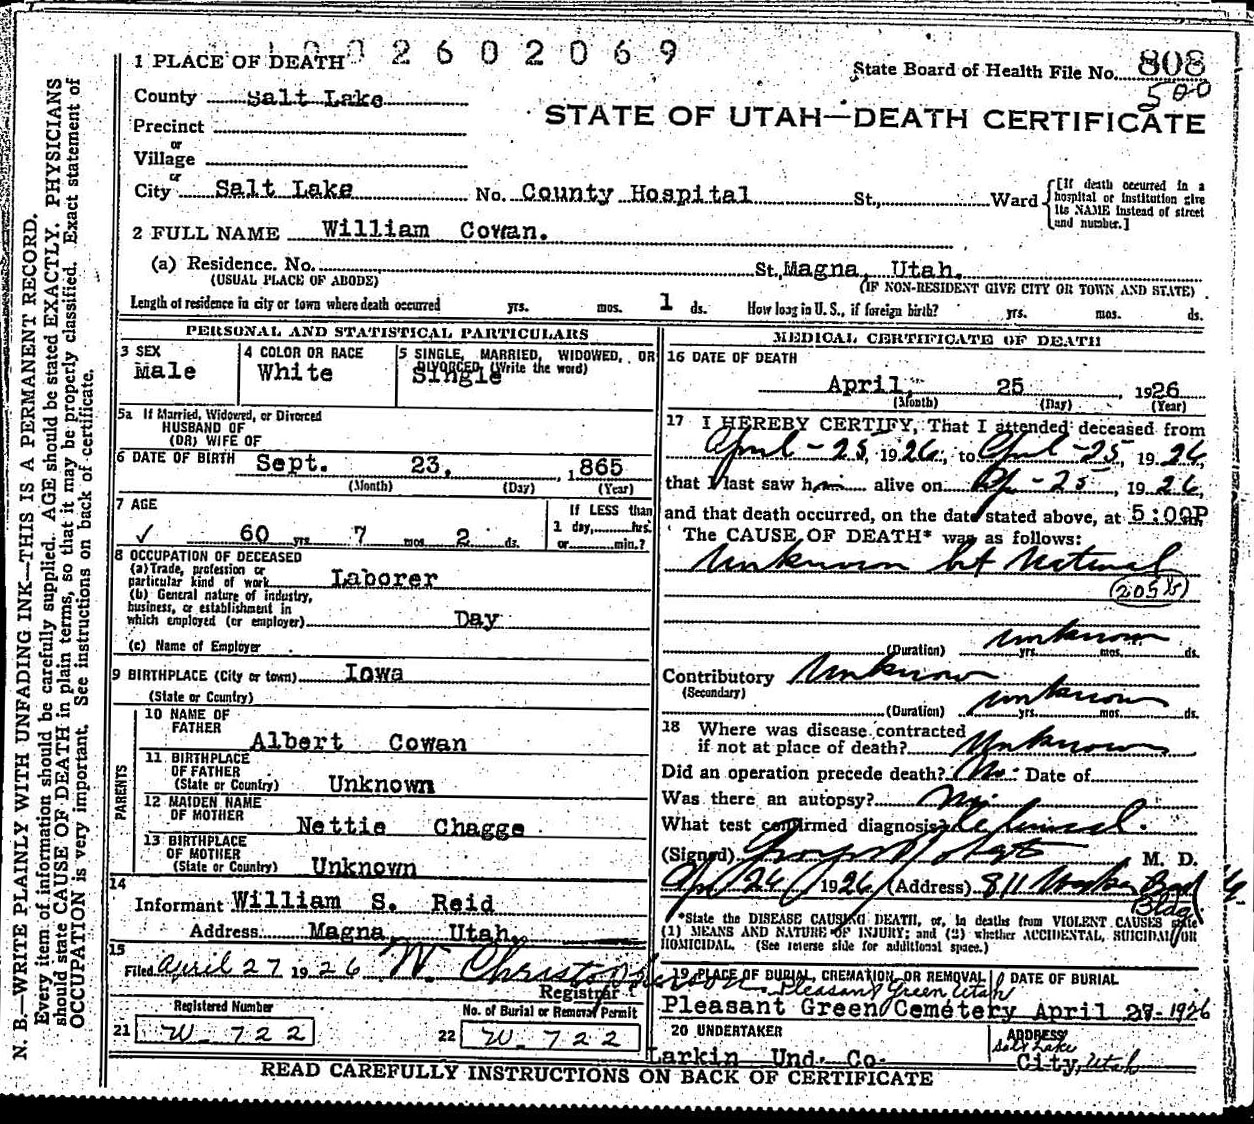 1 PLACE OF DEATH
1002602069
State Board of Health File No. 808
500
County Salt Lake
STATE OF UTAH—DEATH CERTIFICATE
Precinct
or
Village
or
City Salt Lake No. County Hospital St., Ward
[If death occurred in a
hospital or institution give
its NAME instead of street
and number.]
2 FULL NAME William Cowan.
(a) Residence. No. St. Magna, Utah.
(USUAL PLACE OF ABODE) (IF NON-RESIDENT GIVE CITY OR TOWN AND STATE)
Length of residence in city or town where death occurred yrs. mos. 1 ds. How long in U. S., if foreign birth? yrs. mos. ds.
PERSONAL AND STATISTICAL PARTICULARS
3 SEX
Male
4 COLOR OR RACE
White
5 SINGLE, MARRIED, WIDOWED, OR
DIVORCED (Write the word)
Single
5a If Married, Widowed, or Divorced
HUSBAND OF
(OR) WIFE OF
6 DATE OF BIRTH Sept. 23, 1865
(Month) (Day) (Year)
7 AGE
✓ 60 yrs. 7 mos. 2 ds.
If LESS than
1 day, hrs.
or min.?
8 OCCUPATION OF DECEASED
(a) Trade, profession or
particular kind of work Laborer
(b) General nature of industry,
business, or establishment in
which employed (or employer) Day
(c) Name of Employer
9 BIRTHPLACE (City or town) Iowa
(State or Country)
PARENTS
10 NAME OF
FATHER
Albert Cowan
11 BIRTHPLACE
OF FATHER
(State or Country) Unknown
12 MAIDEN NAME
OF MOTHER
Nettie Chagge
13 BIRTHPLACE
OF MOTHER
(State or Country) Unknown
14
Informant William S. Reid
Address Magna, Utah,
15
Filed April 27 1926 W. Christopherson
Registrar
Registered Number
21 W-722
No. of Burial or Removal Permit
22 W-722
MEDICAL CERTIFICATE OF DEATH
16 DATE OF DEATH
April, 25 1926
(Month) (Day) (Year)
17 I HEREBY CERTIFY, That I attended deceased from
April - 25, 1926, to April - 25, 1926,
that I last saw him alive on Ap - 25, 1926,
and that death occurred, on the date stated above, at 5:00P m.
The CAUSE OF DEATH* was as follows:
Unknown but Natural
unknown
(Duration) yrs. mos. ds.
Contributory Unknown
(Secondary) unknown
(Duration) yrs. mos. ds.
18 Where was disease contracted
if not at place of death? Unknown
Did an operation precede death? No. Date of
Was there an autopsy? No.
What test confirmed diagnosis?
(Signed) M. D.
Apr 26 1926 (Address) 811
Bldg
*State the DISEASE CAUSING DEATH, or, in deaths from VIOLENT CAUSES state
(1) MEANS AND NATURE OF INJURY; and (2) whether ACCIDENTAL, SUICIDAL OR
HOMICIDAL. (See reverse side for additional space.)
19 PLACE OF BURIAL, CREMATION, OR REMOVAL
Pleasant Green Utah
Pleasant Green Cemetery
DATE OF BURIAL
April 27- 1926
20 UNDERTAKER
Larkin Und. Co.
ADDRESS
Salt Lake
City, Utah
READ CAREFULLY INSTRUCTIONS ON BACK OF CERTIFICATE
N. B.—WRITE PLAINLY WITH UNFADING INK—THIS IS A PERMANENT RECORD.
Every item of information should be carefully supplied. AGE should be stated EXACTLY. PHYSICIANS
should state CAUSE OF DEATH in plain terms, so that it may be properly classified. Exact statement of
OCCUPATION is very important. See instructions on back of certificate.